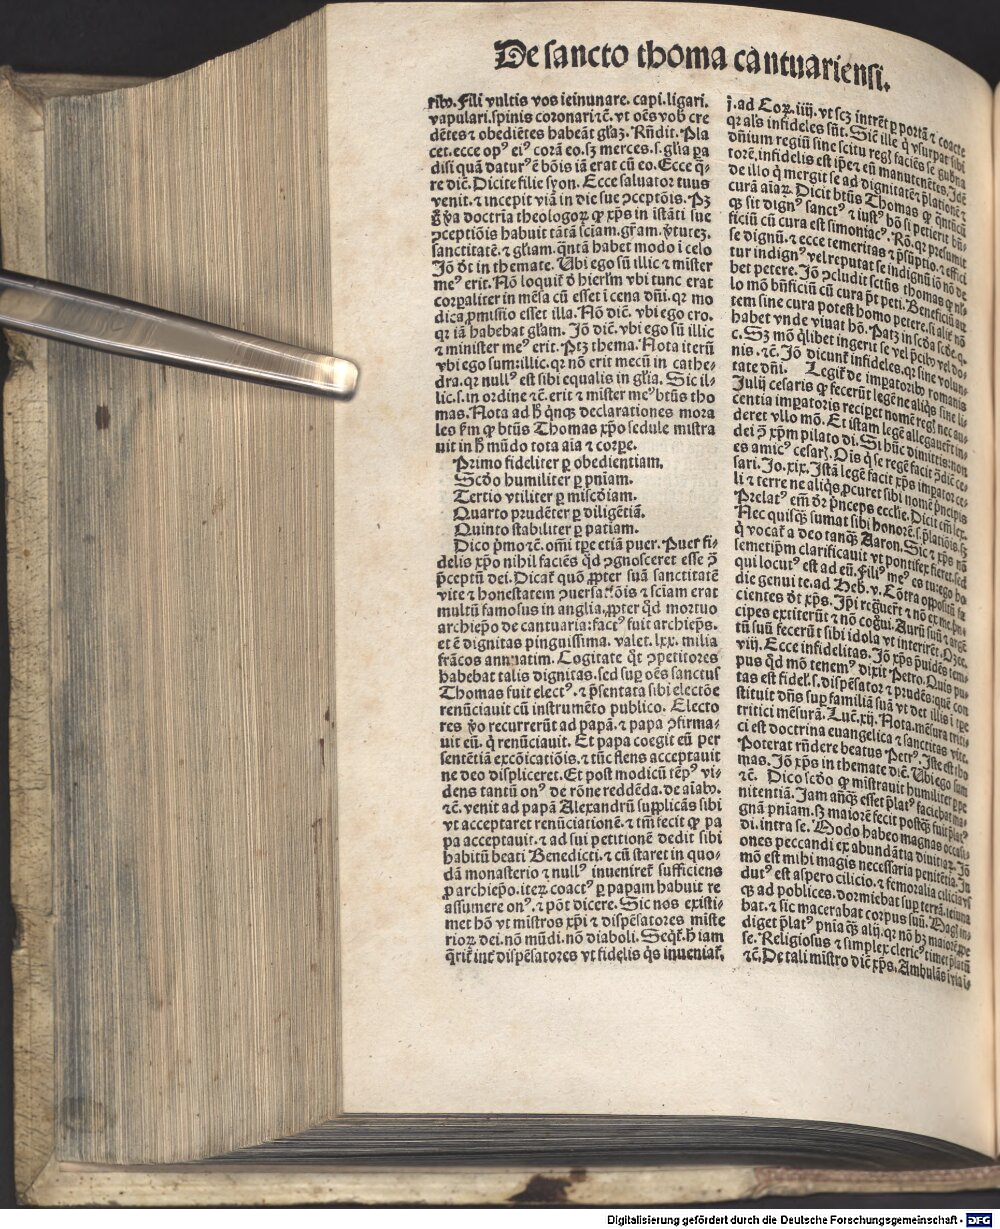 De sancto thoma cantuariensi.
Fili vultis vos ieiunare. capi. ligari.
vapulari. spinis coronari ⁊c̄. vt oēs vob̓ cre
dētes ⁊ obediētes habeāt gl̓aꝫ. Rn̄dit. Pla
cet. ecce opꝰ eiꝰ corā eo. sꝫ merces. s. gl̓ia pa
disi quā daturꝰ ē bōis iā erat cū eo. Ecce q̄-
re dic̄. Dicite filie syon. Ecce saluator tuus
venit. ⁊ incepit viā in die sue ↄceptōis. Pꝫ
doctria theologoꝝ ꝙ xp̄s in istāti sue
ↄceptiōis habuit tātā sciam. gr̄am. v̓tuteꝫ.
sanctitatē. ⁊ gl̓iam. q̄ntā habet modo i celo
Jō d̓t in themate. Vbi ego sū illic ⁊ mister
meꝰ erit. Nō loquit̓ d̓ hierl̓m vbi tunc erat
corꝑaliter in mēsa cū esset i cena dn̄i. qꝛ mo
dica ꝓmissio esset illa. Nō dic̄. vbi ego ero.
qꝛ iā habebat gl̓am. Jō dic̄. vbi ego sū illic
⁊ minister meꝰ erit. Ptꝫ thema. Nota iterū
vbi ego sum: illic. qꝛ nō erit mecū in cathe-
dra. qꝛ nullꝰ est sibi equalis in gl̓ia. Sic il-
lic. s. in ordine ⁊c̄. erit ⁊ mister meꝰ btūs tho
mas. Nota ad h̓ q̄nqꝫ declarationes mora
les ꝙ btūs Thomas xp̄o sedule mistra
uit in h̓ mūdo tota aīa ⁊ corꝑe.
Primo fideliter ꝑ obedientiam.
Scd̓o humiliter ꝑ pn̄iam.
Tertio vtiliter ꝑ misc̄diam.
Quarto prudēter ꝑ diligētiā.
Quinto stabiliter ꝑ patiam.
Dico p̓mo ⁊c̄. om̄i tꝑe etiā puer. Puer fi-
delis xp̄o nihil faciēs qd̓ ↄgnosceret esse ↄ̄
p̄ceptū dei. Dicat̓ quō ꝓpter suā sanctitatē
vite ⁊ honestatem ↄuersatōis ⁊ sciam erat
multū famosus in anglia. ꝓpter qd̓ mortuo
archiep̄o de cantuaria: factꝰ fuit archiep̄s.
et ē dignitas pinguissima. valet. lxx. milia
frācos annuatim. Cogitate q̄t ↄpetitores
habebat talis dignitas. sed suꝑ oēs sanctus
Thomas fuit electꝰ. ⁊ p̄sentata sibi electōe
renūciauit cū instrumēto publico. Electo
res v̓o recurrerūt ad papā. ⁊ papa ↄfirma-
uit eū. q̓ renūciauit. Et papa coegit eū per
sentētiā excōicatiōis. ⁊ tūc flens acceptauit
ne deo displiceret. Et post modicū tēpꝰ vi-
dens tantū onꝰ de rōne reddēda. de aīabꝰ.
⁊c̄. venit ad papā Alexandrū supplicās sibi
vt acceptaret renūciationē. ⁊ tm̄ fecit ꝙ pa
pa acceptauit. ⁊ ad sui petitionē dedit sibi
habitū beati Benedicti. ⁊ cū staret in quo-
dā monasterio ⁊ nullꝰ inueniret̓ sufficiens
ꝓ archiep̄o. iteꝝ coactꝰ ꝑ papam habuit re
assumere onꝰ. ⁊ pōt dicere. Sic nos existi-
met hō vt mistros xp̄i ⁊ dispēsatores miste
rioꝝ dei. nō mūdi. nō diaboli. Seqt̓. h̓ iam
q̄rit̓ int̓ dispēsatores vt fidelis q̓s inueniat̓.
j. ad Coꝝ. iiij. vt scꝫ intrēt ꝑ portā ⁊ coacte
qꝛ al̓s infideles sn̄t. Sic̄ ille q̓ vsurpat sibi
dn̄ium regiū sine scitu reg̓ faciēs se guberna
torē, infidelis est ip̄e ⁊ eū manutenētes. Jdē
de illo q̓ mergit se ad dignitatē p̄lationē ⁊
curā aīaꝝ. Dicit btūs Thomas ꝙ
ꝙ sit dignꝰ sanctꝰ ⁊ iustꝰ hō si petierit bn̄-
ficiū cū cura est simoniacꝰ. Rō. qꝛ presumit
se dignū. ⁊ ecce temeritas ⁊ p̄sūptio. ⁊ effici
tur indignꝰ vel reputat se indignū iō nō de
bet petere. Jō ↄcludit sctūs thomas ꝙ
lo mō bn̄ficiū cū cura p̄t peti. Beneficiū au
tem sine cura potest homo petere. si alie nō
habet vnde viuat hō. Patꝫ in scd̓a scd̓e. q.
c. Sꝫ mō q̄libet ingerit se vel p̓cibꝰ vel do-
nis. ⁊c̄. Jō dicunt̓ infideles. qꝛ sine volun-
tate dn̄i. Legit̓ de imꝑatoribꝰ romanis
Julij cesaris ꝙ fecerūt legē ne aliq̓s sine li-
centia imꝑatoris reciꝑet nomē reg̓ nec au-
deret vllo mō. Et istam legē allegauerūt iu-
dei ↄ̄ xp̄m pilato di. Si hūc dimittis: non
es amicꝰ cesaris. Ois q̓ se regē facit ↄ̄dic̄ ce-
sari. Jo. xix. Jstā legē facit xp̄s imꝑator ce-
li ⁊ terre ne aliq̓s ꝓcuret sibi nomē p̓ncipis
Prelatꝰ em̄ d̓r p̓nceps ecclie. Dicit em̄ lex.
Nec quisqꝫ sumat sibi honorē. s. p̄latiōis. sꝫ
q̓ vocat̓ a deo tanqꝫ Aaron. Sic ⁊ xp̄s nō
semetip̄m clarificauit vt pontifex fieret. sed
qui locutꝰ est ad eū. Filiꝰ meꝰ es tu: ego ho
die genui te. ad Heb. v. Cōtra oppositū fa
cientes d̓t xp̄s. Jp̄i regn̄uert̓ ⁊ nō ex me. p̓n-
cipes extiterūt ⁊ nō cogui. Aurū suū ⁊ argē
tū suū fecerūt sibi idola vt interirēt. Ozee.
viij. Ecce infidelitas. Jō xp̄s p̓uidēs tem-
pus qd̓ mō tenemꝰ dixit Petro. Quis pu-
tas est fidel̓. s. dispēsator ⁊ prudēs: quē con
stituit dn̄s suꝑ familiā suā vt det illis i tꝑe
tritici mēsurā. Luc̄. xij. Nota. mēsura triti-
ci est doctrina euangelica ⁊ sanctitas vite.
Poterat rn̄dere beatus Petrꝰ. Jste est tho
mas. Jō xp̄s in themate dic̄. Vbi ego sum
⁊c̄. Dico scd̓o ꝙ mistrauit humiliter ꝑ pe
nitentiā. Jam anqꝫ esset p̄latꝰ faciebat ma-
gnā pn̄iam. sꝫ maiorē fecit postqꝫ fuit p̄latꝰ
di. intra se. Modo habeo magnas occasi-
ones peccandi ex abundātia diuitiaꝝ. Jō
mō est mihi magis necessaria penitētia. In
dutꝰ est aspero cilicio. ⁊ femoralia cilicia vs
qꝫ ad poblices. dormiebat suꝑ terrā. ieiuna
bat. ⁊ sic macerabat corpus suū. Mag̓ in-
diget p̄latꝰ pn̄ia qꝫ alij. qꝛ nō hꝫ maiorē
se. Religiosus ⁊ simplex clericꝰ timet p̄latū
⁊c̄. De tali mistro dic̄ xp̄s. Ambulās i via i-
Digitalisierung gefördert durch die Deutsche Forschungsgemeinschaft - DFG